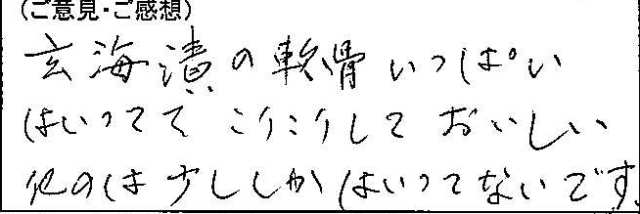 (ご意見・ご感想)
玄海漬の軟骨いっぱい
はいってて こりこりして おいしい
他のは少ししかはいってないです